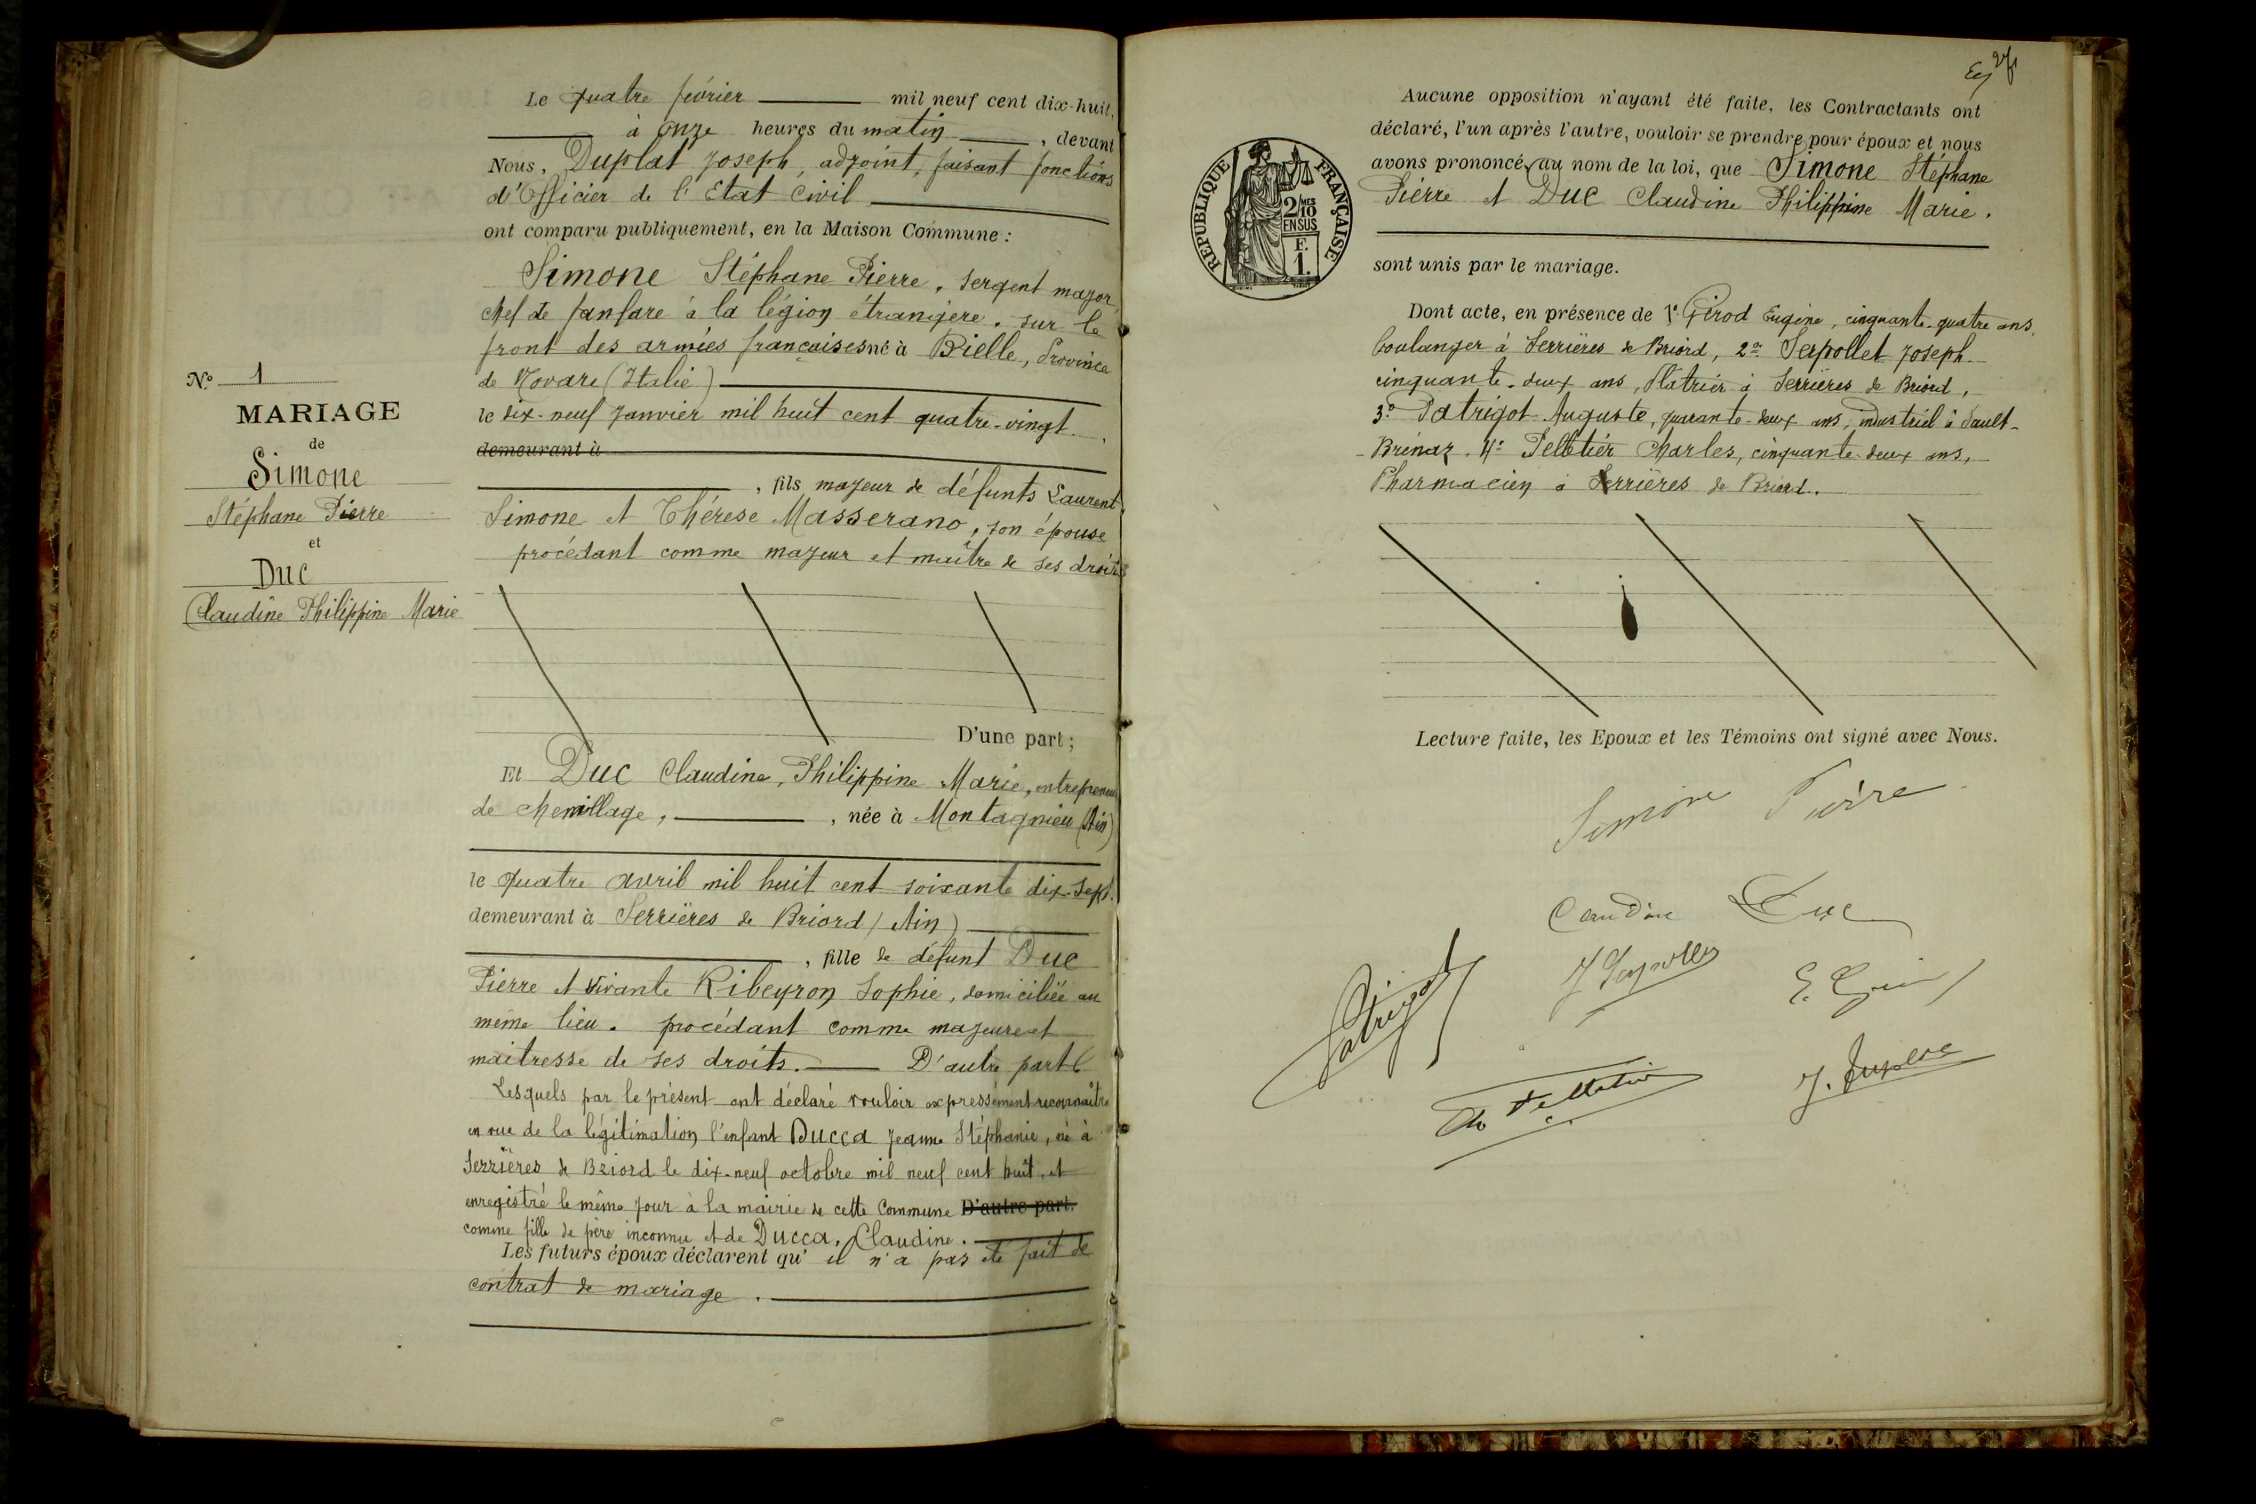 Le quatre février mil neuf cent dix-huit,
à onze heures du matin, devant
Nous, Duplat Joseph, adjoint, faisant fonctions
d'Officier de l'Etat Civil
ont comparu publiquement, en la Maison Commune :
Simone Stéphane Pierre, sergent major,
chef de fanfare à la légion étrangère, sur le
front des armées françaises né à Bielle, Province
de Novare (Italie)
le dix-neuf janvier mil huit cent quatre-vingt
demeurant à
, fils majeur de défunts Laurent
Simone et Thérèse Masserano, son épouse
procédant comme majeur et maître de ses droits
D'une part ;
Nº 1
MARIAGE
de
Simone
Stéphane Pierre
et
Duc
Claudine Philippine Marie
Et Duc Claudine, Philippine Marie, entrepreneur
de chenillage, née à Montagnieu (Ain)
le quatre avril mil huit cent soixante dix-sept.
demeurant à Serrières de Briord (Ain)
, fille de défunt Duc
Pierre et vivante Ribeyron Sophie, domiciliée au
même lieu. procédant comme majeure et
maîtresse de ses droits. D'autre part
Lesquels par le présent ont déclaré vouloir expressément reconnaître
en vue de la légitimation l'enfant Ducca Jeanne Stéphanie, né à
Serrières de Briord le dix-neuf octobre mil neuf cent huit, et
enregistré le même jour à la mairie de cette Commune D'autre part.
comme fille de père inconnu et de Ducca, Claudine.
Les futurs époux déclarent qu'il n'a pas été fait de
contrat de mariage.
27
Aucune opposition n'ayant été faite, les Contractants ont
déclaré, l'un après l'autre, vouloir se prendre pour époux et nous
avons prononcé, au nom de la loi, que Simone Stéphane
Pierre et Duc Claudine Philippine Marie.
sont unis par le mariage.
REPUBLIQUE FRANÇAISE
2 MES
10
EN SUS
F.
1.
Dont acte, en présence de 1º Girod Eugène, cinquante-quatre ans,
boulanger à Serrières de Briord, 2º Serpollet Joseph
cinquante-deux ans, Plâtrier à Serrières de Briord,
3º Patrigot Auguste, quarante-deux ans, industriel à Sault-
-Brénaz. 4º Pelletier Charles, cinquante-deux ans,
Pharmacien à Serrières de Briord.
Lecture faite, les Epoux et les Témoins ont signé avec Nous.
Simone Pierre
Claudine Duc
Patrigot
J Serpollet
E. Girod
Ch Pelletier
J. Duplat